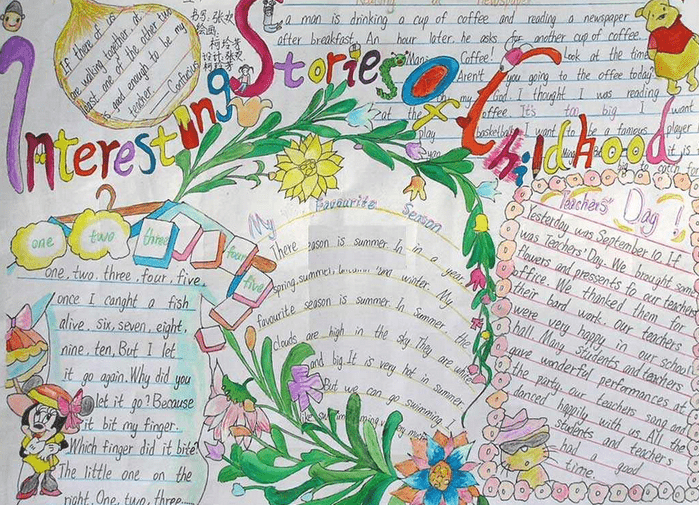 Interesting Stories Of Childhood
If there are
are walking together, at
least one of the other two
is good enough to be my
teacher. — Confucius
书写:
绘画:
柯玲芳
设计:
柯玲芳
Reading a Newspaper
a man is drinking a cup of coffee and reading a newspaper
after breakfast. An hour later, he asks for another cup of coffee.
Coffee! Look at the time
Aren't you going to the office today
God. I thought I was reading
at the office It's too big I want
play basketball. I want to be a famous player
one two three four five
one, two, three, four, five,
once I canght a fish
alive, six, seven, eight,
nine, ten, But I let
it go again. Why did you
let it go? Because
it bit my finger.
Which finger did it bite
The little one on the
right. One, two, three......
My Favourite Season
There season is summer. In in a year,
spring, summer, and winter. My
favourite season is summer. In summer the
clouds are high in the sky. They are white
and big. It is very hot in summer.
But we can go swimming. I
like swimming very much
Teachers' Day!
Yesterday was September 10. If
was Teachers' Day. We brought some
flowers and pressents fo our teachers
office. We thanked them for
their bard work. Our teachers
were very happy in our schoul
hall. Many students and teachers
gave wonderful performances at
the party. our teachers song and
danced happily with us. All the
students and teachers
had a good
time.